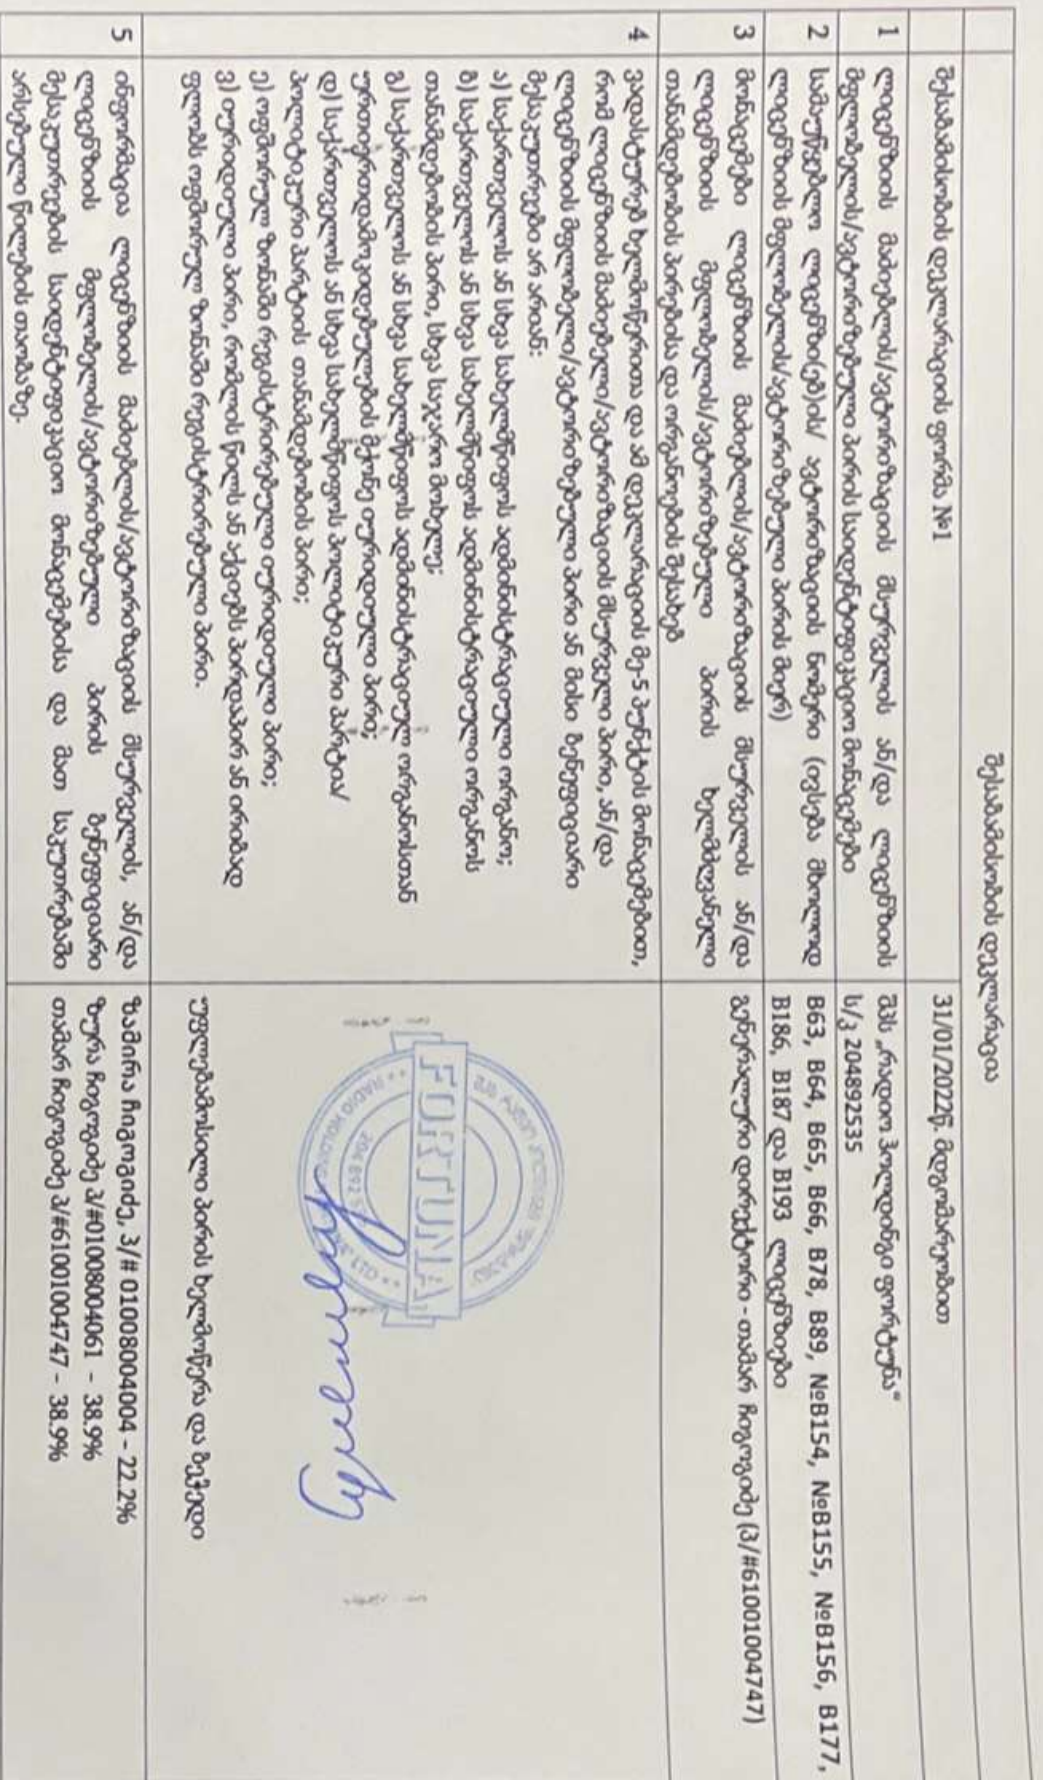 შესაბამისობის დეკლარაცია
შესაბამისობის დეკლარაციის ფორმა №1
31/01/2022წ. მდგომარეობით
1
ლიცენზიის მაძიებლის/ავტორიზაციის მსურველის ან/და ლიცენზიის
მფლობელის/ავტორიზებული პირის საიდენტიფიკაციო მონაცემები
შპს „რადიო ჰოლდინგი ფორტუნა“
ს/კ 204892535
2
სამაუწყებლო ლიცენზი(ებ)ის/ ავტორიზაციის ნომერი (ივსება მხოლოდ
ლიცენზიის მფლობელის/ავტორიზებული პირის მიერ)
B63, B64, B65, B66, B78, B89, №B154, №B155, №B156, B177,
B186, B187 და B193 ლიცენზიები
3
მონაცემები ლიცენზიის მაძიებლის/ავტორიზაციის მსურველის ან/და
ლიცენზიის მფლობელის/ავტორიზებული პირის ხელმძღვანელი
თანამდებობის პირებისა და ორგანოების შესახებ
გენერალური დირექტორი - თამარ ჩიგოგიძე (პ/#61001004747)
4
ვადასტურებ ხელმოწერითა და ამ დეკლარაციის მე-5 პუნქტის მონაცემებით,
რომ ლიცენზიის მაძიებელი/ავტორიზაციის მსურველი პირი, ან/და
ლიცენზიის მფლობელი/ავტორიზებული პირი ან მისი ბენეფიციარი
მესაკუთრეები არ არიან:
ა) საქართველოს ან სხვა სახელმწიფოს ადმინისტრაციული ორგანო;
ბ) საქართველოს ან სხვა სახელმწიფოს ადმინისტრაციული ორგანოს
თანამდებობის პირი, სხვა საჯარო მოხელე;
გ) საქართველოს ან სხვა სახელმწიფოს ადმინისტრაციულ ორგანოსთან
ურთიერთდამოკიდებულების მქონე იურიდიული პირი;
დ) საქართველოს ან სხვა სახელმწიფოს პოლიტიკური პარტია/
პოლიტიკური პარტიის თანამდებობის პირი;
ე) ოფშორულ ზონაში რეგისტრირებული იურიდიული პირი;
ვ) იურიდიული პირი, რომლის წილს ან აქციებს პირდაპირ ან ირიბად
ფლობს ოფშორულ ზონაში რეგისტრირებული პირი.
FORTUNA
უფლებამოსილი პირის ხელმოწერა და ბეჭედი
5
ინფორმაცია ლიცენზიის მაძიებლის/ავტორიზაციის მსურველის, ან/და
ლიცენზიის მფლობელის/ავტორიზებული პირის ბენეფიციარი
მესაკუთრეების საიდენტიფიკაციო მონაცემებისა და მათ საკუთრებაში
არსებული წილების თაობაზე.
ზამირა ჩიგოგიძე, პ/# 01008004004 - 22.2%
ზურა ჩიგოგიძე პ/#01008004061 - 38.9%
თამარ ჩიგოგიძე პ/#61001004747 - 38.9%